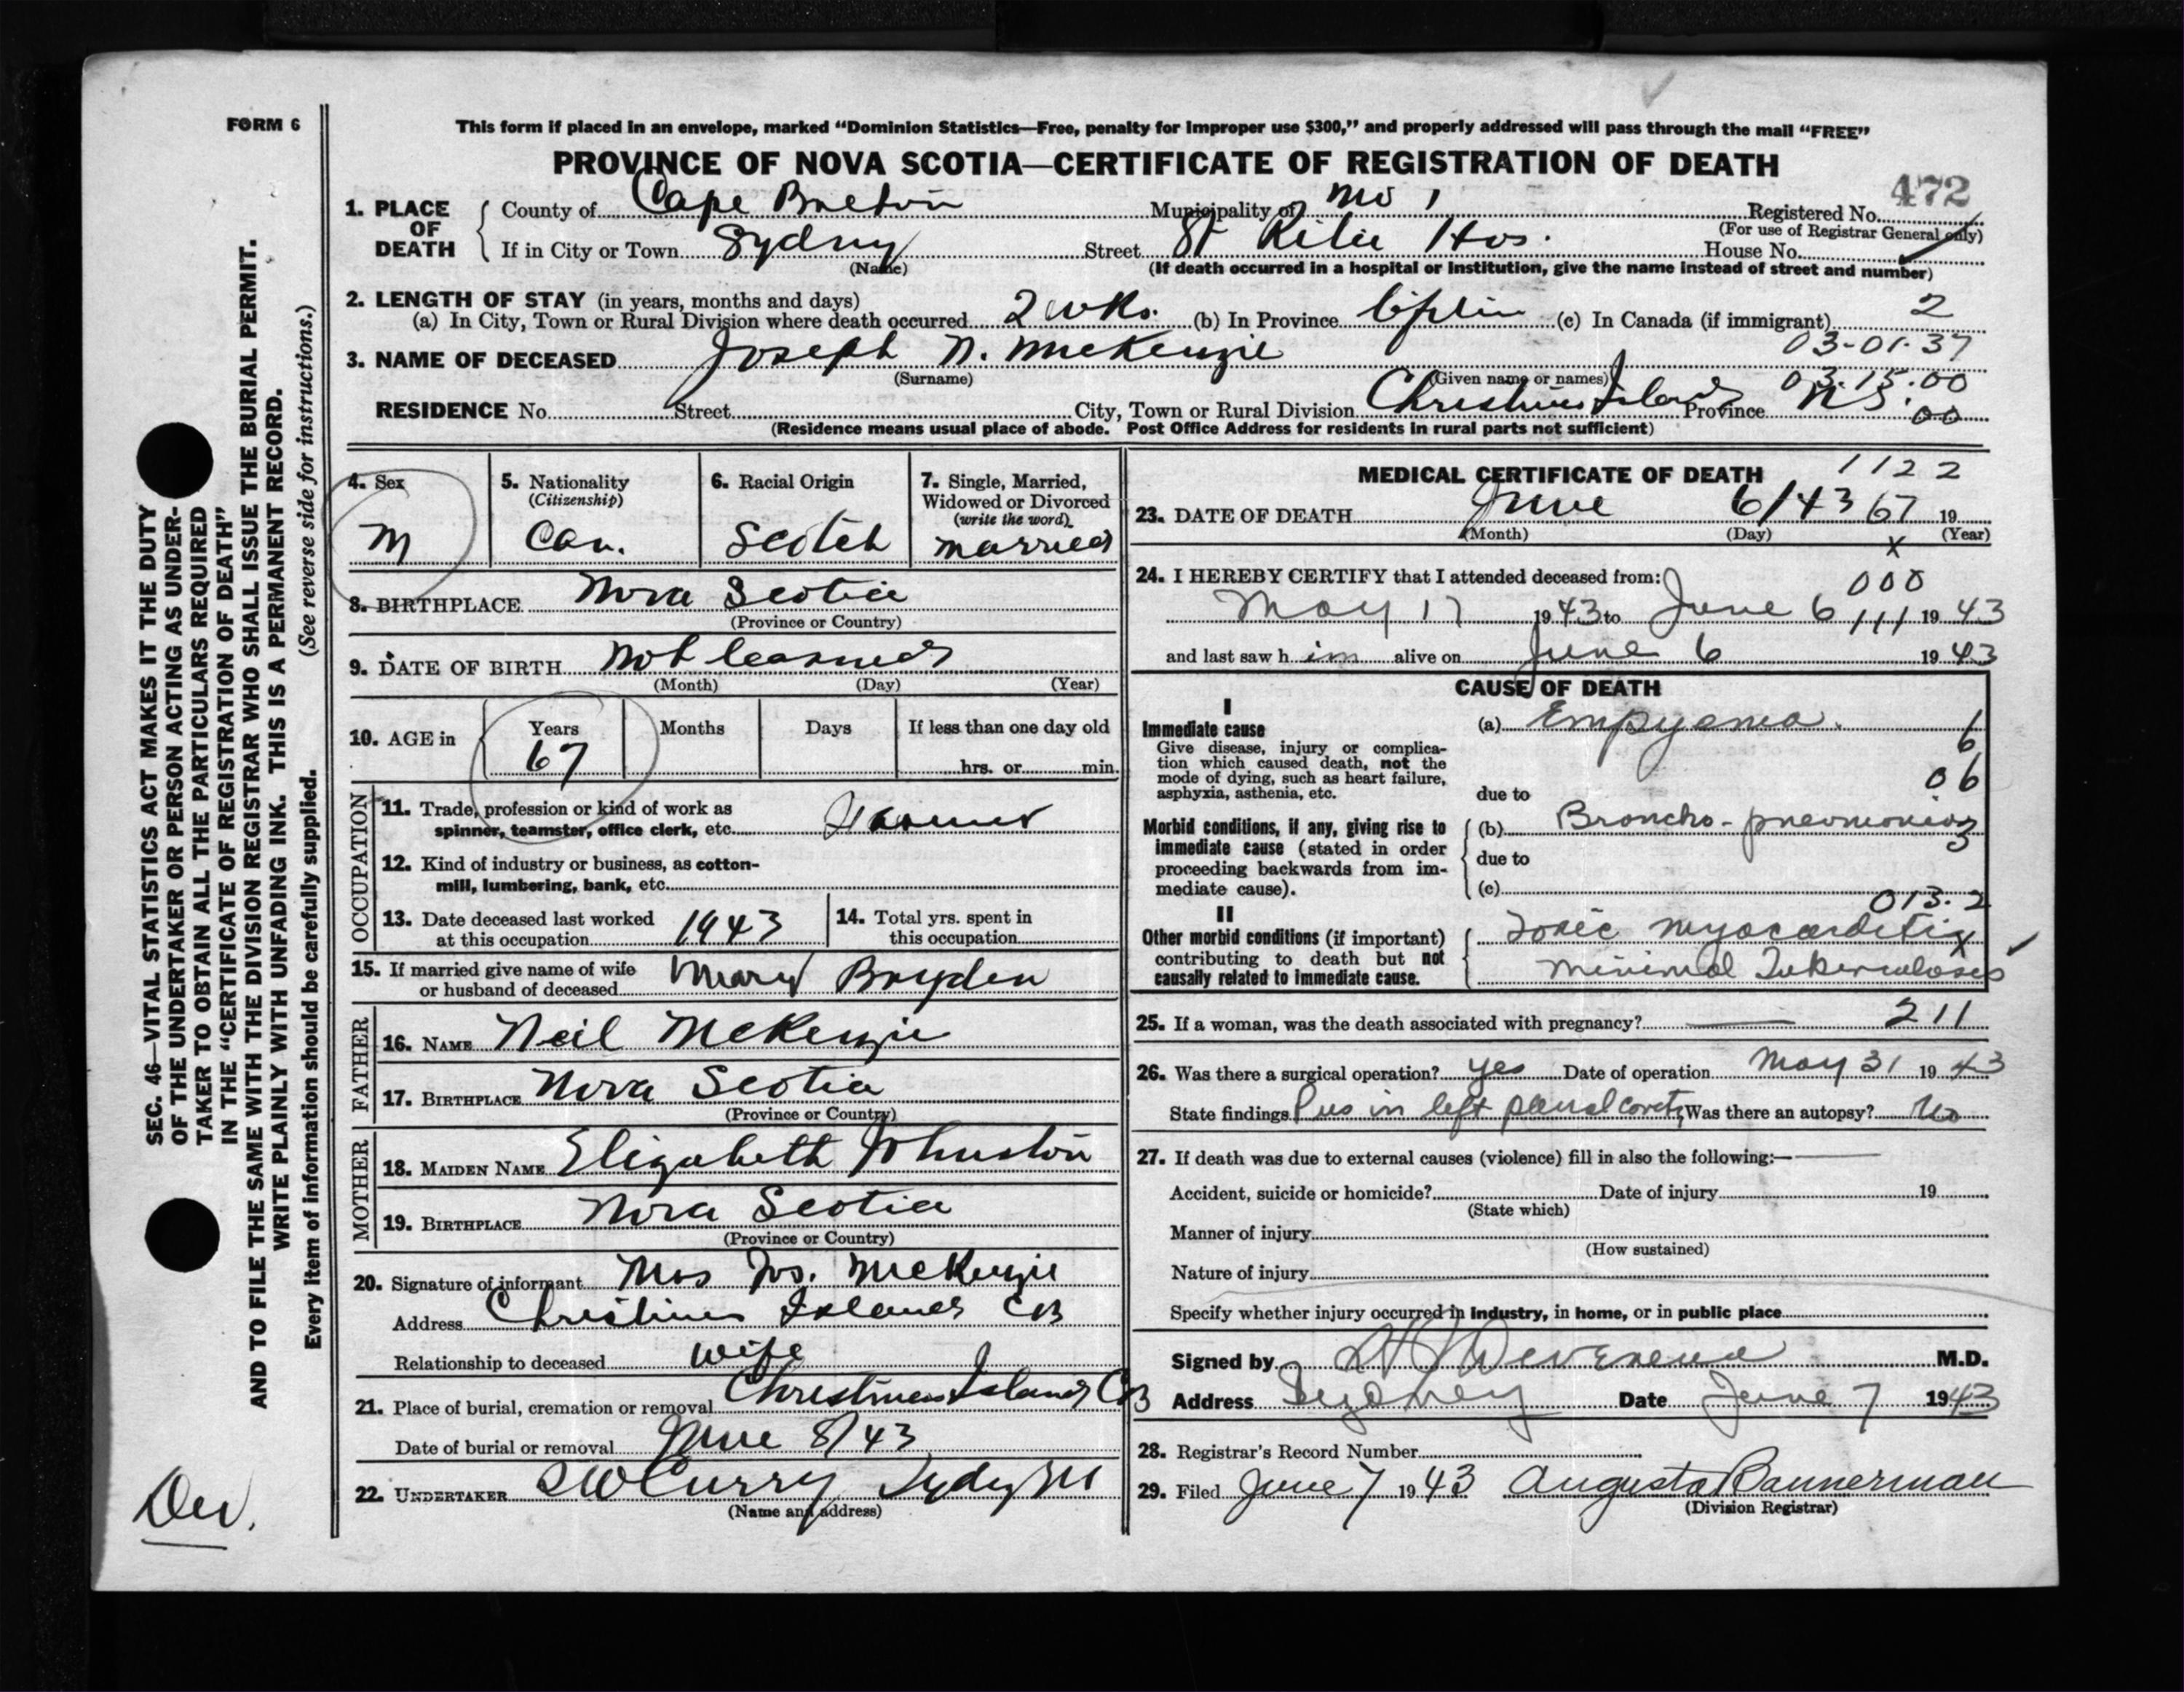 FORM 6
This form if placed in an envelope, marked “Dominion Statistics—Free, penalty for improper use $300,” and properly addressed will pass through the mail “FREE”
PROVINCE OF NOVA SCOTIA—CERTIFICATE OF REGISTRATION OF DEATH
472
1. PLACE OF DEATH
County of Cape Breton Municipality of No 1 Registered No.
(For use of Registrar General only)
If in City or Town Sydney Street St Rita Hos. House No.
(Name) (If death occurred in a hospital or institution, give the name instead of street and number)
2. LENGTH OF STAY (in years, months and days)
(a) In City, Town or Rural Division where death occurred 2 wks. (b) In Province (c) In Canada (if immigrant) 2
03-01-37
3. NAME OF DECEASED Joseph N. McKenzie
(Surname) (Given name or names) 03.15.00
RESIDENCE No. Street City, Town or Rural Division Christmas Island Province N.S. 00
(Residence means usual place of abode. Post Office Address for residents in rural parts not sufficient)
4. Sex
M
5. Nationality
(Citizenship)
Can.
6. Racial Origin
Scotch
7. Single, Married,
Widowed or Divorced
(write the word)
married
8. BIRTHPLACE Nova Scotia
(Province or Country)
9. DATE OF BIRTH Not learned
(Month) (Day) (Year)
10. AGE in
Years Months Days If less than one day old
67 hrs. or min.
OCCUPATION
11. Trade, profession or kind of work as
spinner, teamster, office clerk, etc. Farmer
12. Kind of industry or business, as cotton-
mill, lumbering, bank, etc.
13. Date deceased last worked
at this occupation 1943
14. Total yrs. spent in
this occupation
15. If married give name of wife
or husband of deceased Mary Boyden
FATHER
16. NAME Neil McKenzie
17. BIRTHPLACE Nova Scotia
(Province or Country)
MOTHER
18. MAIDEN NAME Elizabeth Johnston
19. BIRTHPLACE Nova Scotia
(Province or Country)
20. Signature of informant Mrs Jos. McKenzie
Address Christmas Island CB
Relationship to deceased wife
21. Place of burial, cremation or removal Christmas Island CB
Date of burial or removal June 8/43
22. UNDERTAKER Curry Sydney
(Name and address)
MEDICAL CERTIFICATE OF DEATH 1122
23. DATE OF DEATH June 6/43 67 19
(Month) (Day) (Year)
x
24. I HEREBY CERTIFY that I attended deceased from: 000
May 17 1943 to June 6 111 1943
and last saw him alive on June 6 1943
CAUSE OF DEATH
I
Immediate cause
Give disease, injury or complica-
tion which caused death, not the
mode of dying, such as heart failure,
asphyxia, asthenia, etc.
(a) Empyema. 1
6
06
due to
Morbid conditions, if any, giving rise to
immediate cause (stated in order
proceeding backwards from im-
mediate cause).
(b) Broncho-pneumonia
3
due to
(c)
013.2
II
Other morbid conditions (if important)
contributing to death but not
causally related to immediate cause.
Toxic myocarditis
x
Minimal Tuberculosis
25. If a woman, was the death associated with pregnancy? 211
26. Was there a surgical operation? yes Date of operation May 31 1943
State findings Pus in left pleural cavity Was there an autopsy? No
27. If death was due to external causes (violence) fill in also the following:—
Accident, suicide or homicide? Date of injury 19
(State which)
Manner of injury
(How sustained)
Nature of injury
Specify whether injury occurred in industry, in home, or in public place
Signed by M.D.
Address Sydney Date June 7 1943
28. Registrar's Record Number
29. Filed June 7 1943 Augusta Bannerman
(Division Registrar)
SEC. 46—VITAL STATISTICS ACT MAKES IT THE DUTY
OF THE UNDERTAKER OR PERSON ACTING AS UNDER-
TAKER TO OBTAIN ALL THE PARTICULARS REQUIRED
IN THE “CERTIFICATE OF REGISTRATION OF DEATH”
AND TO FILE THE SAME WITH THE DIVISION REGISTRAR WHO SHALL ISSUE THE BURIAL PERMIT.
WRITE PLAINLY WITH UNFADING INK. THIS IS A PERMANENT RECORD.
Every item of information should be carefully supplied. (See reverse side for instructions.)